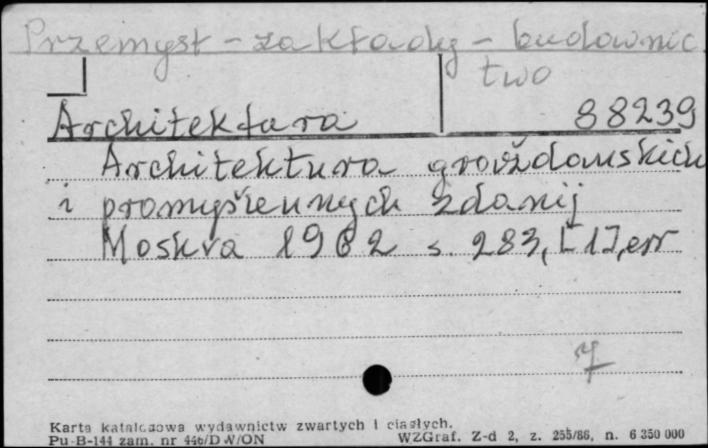 Przemysł - zakłady - budownic
two
Architektura 88239
Architektura graždanskich
i promyšlennych zdanij
Moskva 1962 s. 283, [1], err
7
Karta katalogowa wydawnictw zwartych i ciągłych.
Pu-B-144 zam. nr 446/DW/ON WZGraf. Z-d 2, z. 255/86, n. 6 350 000